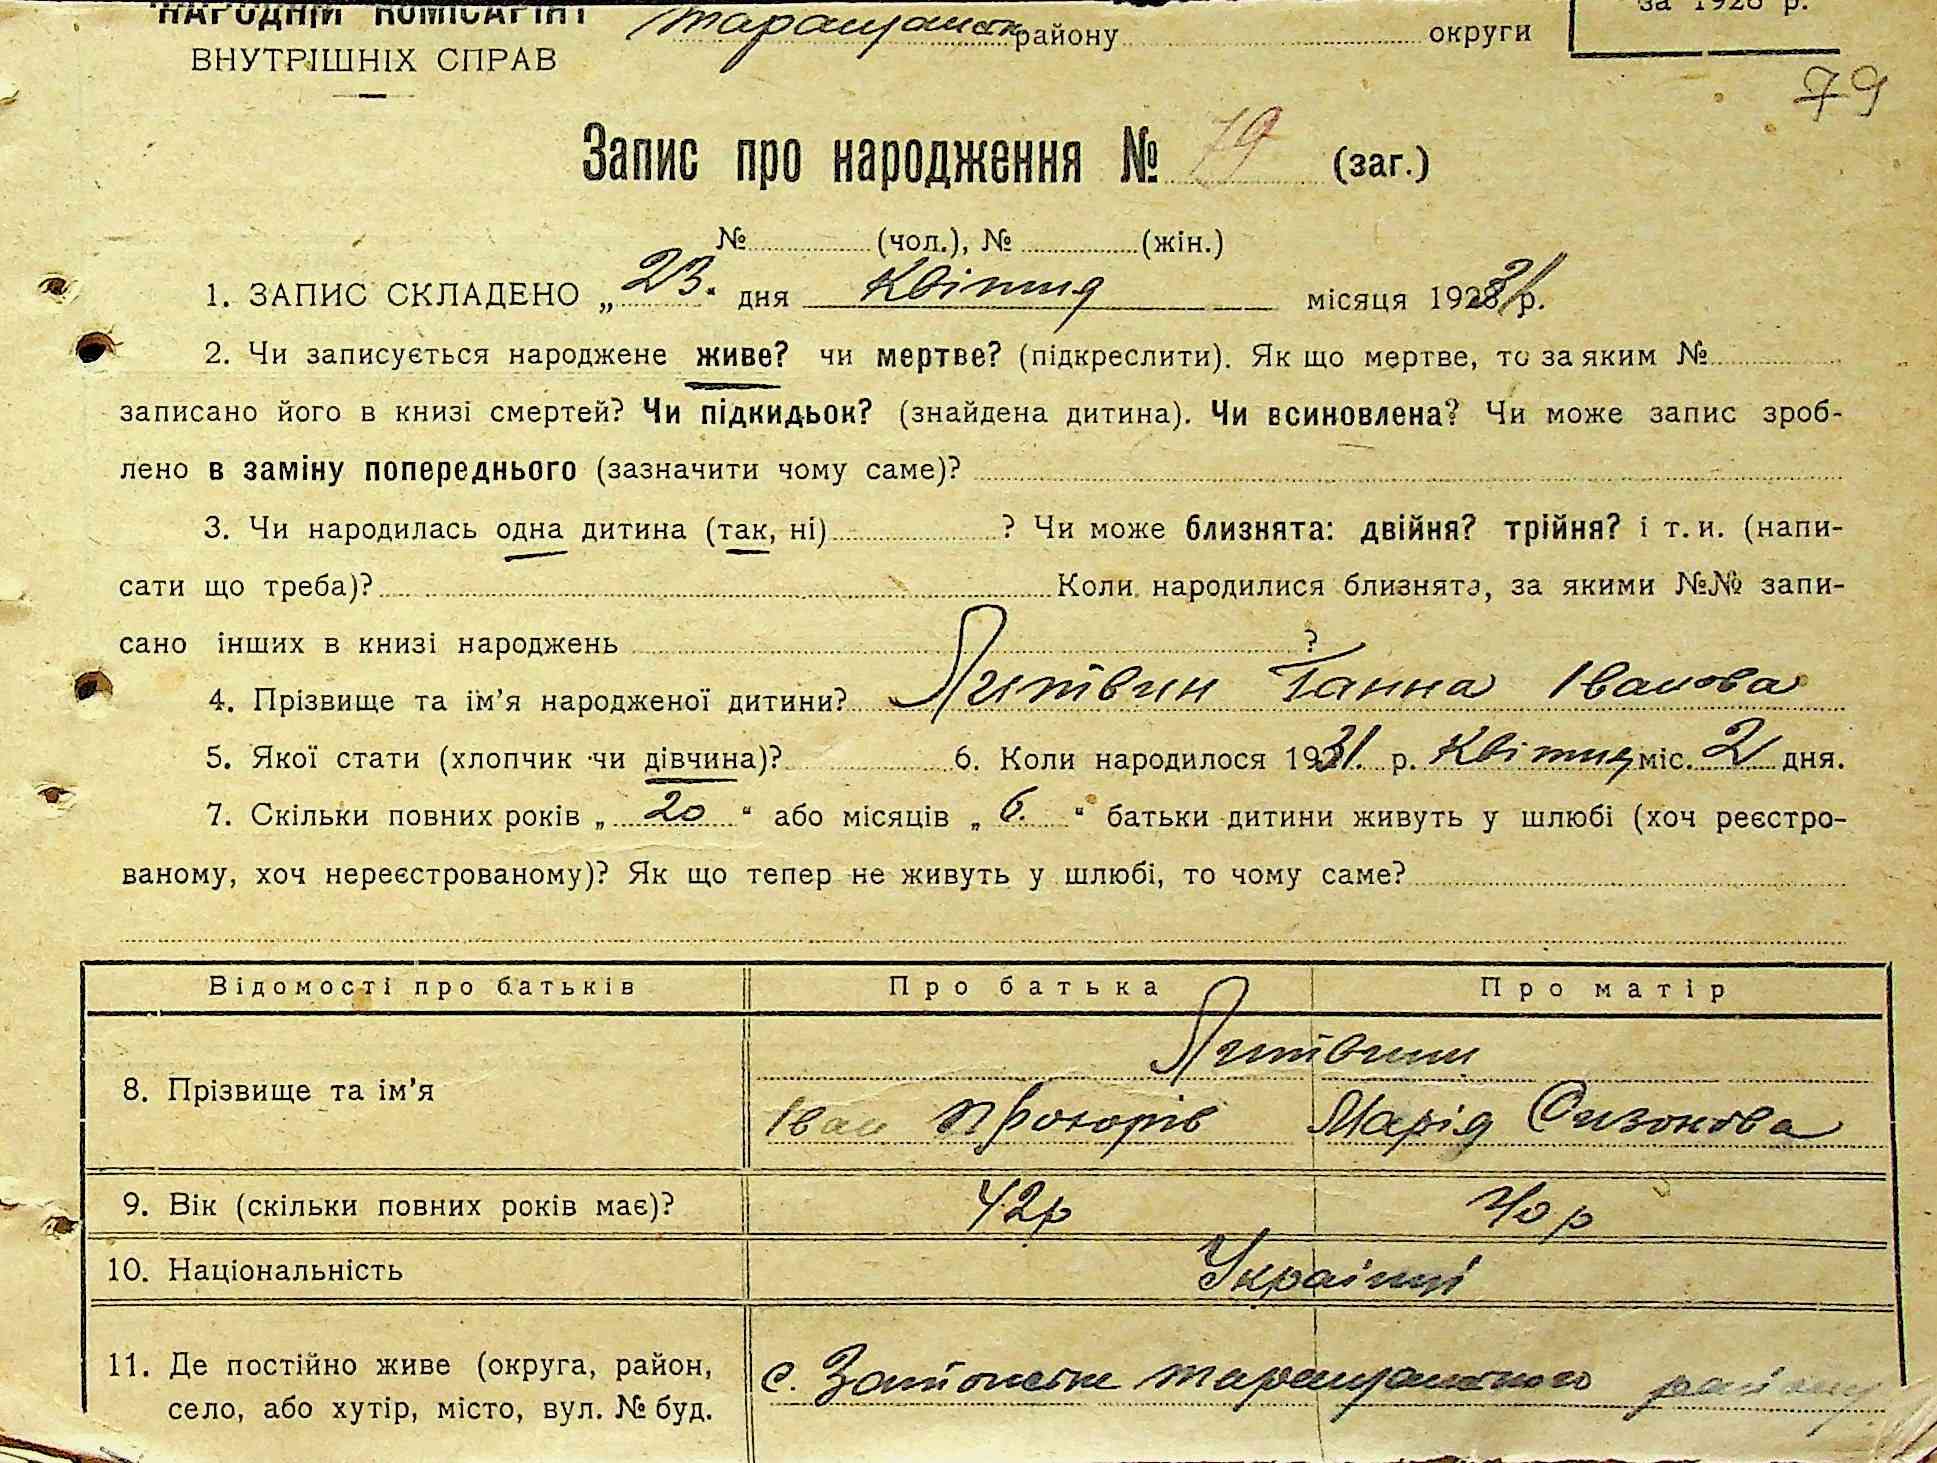 НАРОДНІЙ КОМІСАРІЯТ
ВНУТРІШНІХ СПРАВ
району округи
за 1928 р.
79
Запис про народження № 79 (заг.)
№ (чол.), № (жін.)
1. ЗАПИС СКЛАДЕНО „ 23 “ дня Квітня місяця 1931 р.
2. Чи записується народжене живе? чи мертве? (підкреслити). Як що мертве, то за яким №
записано його в книзі смертей? Чи підкидьок? (знайдена дитина). Чи всиновлена? Чи може запис зроб-
лено в заміну попереднього (зазначити чому саме)?
3. Чи народилась одна дитина (так, ні) ? Чи може близнята: двійня? трійня? і т. и. (напи-
сати що треба)? Коли народилися близнята, за якими №№ запи-
сано інших в книзі народжень ?
4. Прізвище та ім'я народженої дитини? Литвин Ганна Іванова
5. Якої стати (хлопчик чи дівчина)? 6. Коли народилося 1931. р. Квітня міс. 21 дня.
7. Скільки повних років „ 20 “ або місяців „ 6. “ батьки дитини живуть у шлюбі (хоч реєстро-
ваному, хоч нереєстрованому)? Як що тепер не живуть у шлюбі, то чому саме?
Відомості про батьків Про батька Про матір
Литвини
8. Прізвище та ім'я
Іван Прохорів Марія Сизонова
9. Вік (скільки повних років має)? 42р 40 р
10. Національність Українці
11. Де постійно живе (округа, район, с. Таращанського району
село, або хутір, місто, вул. № буд.